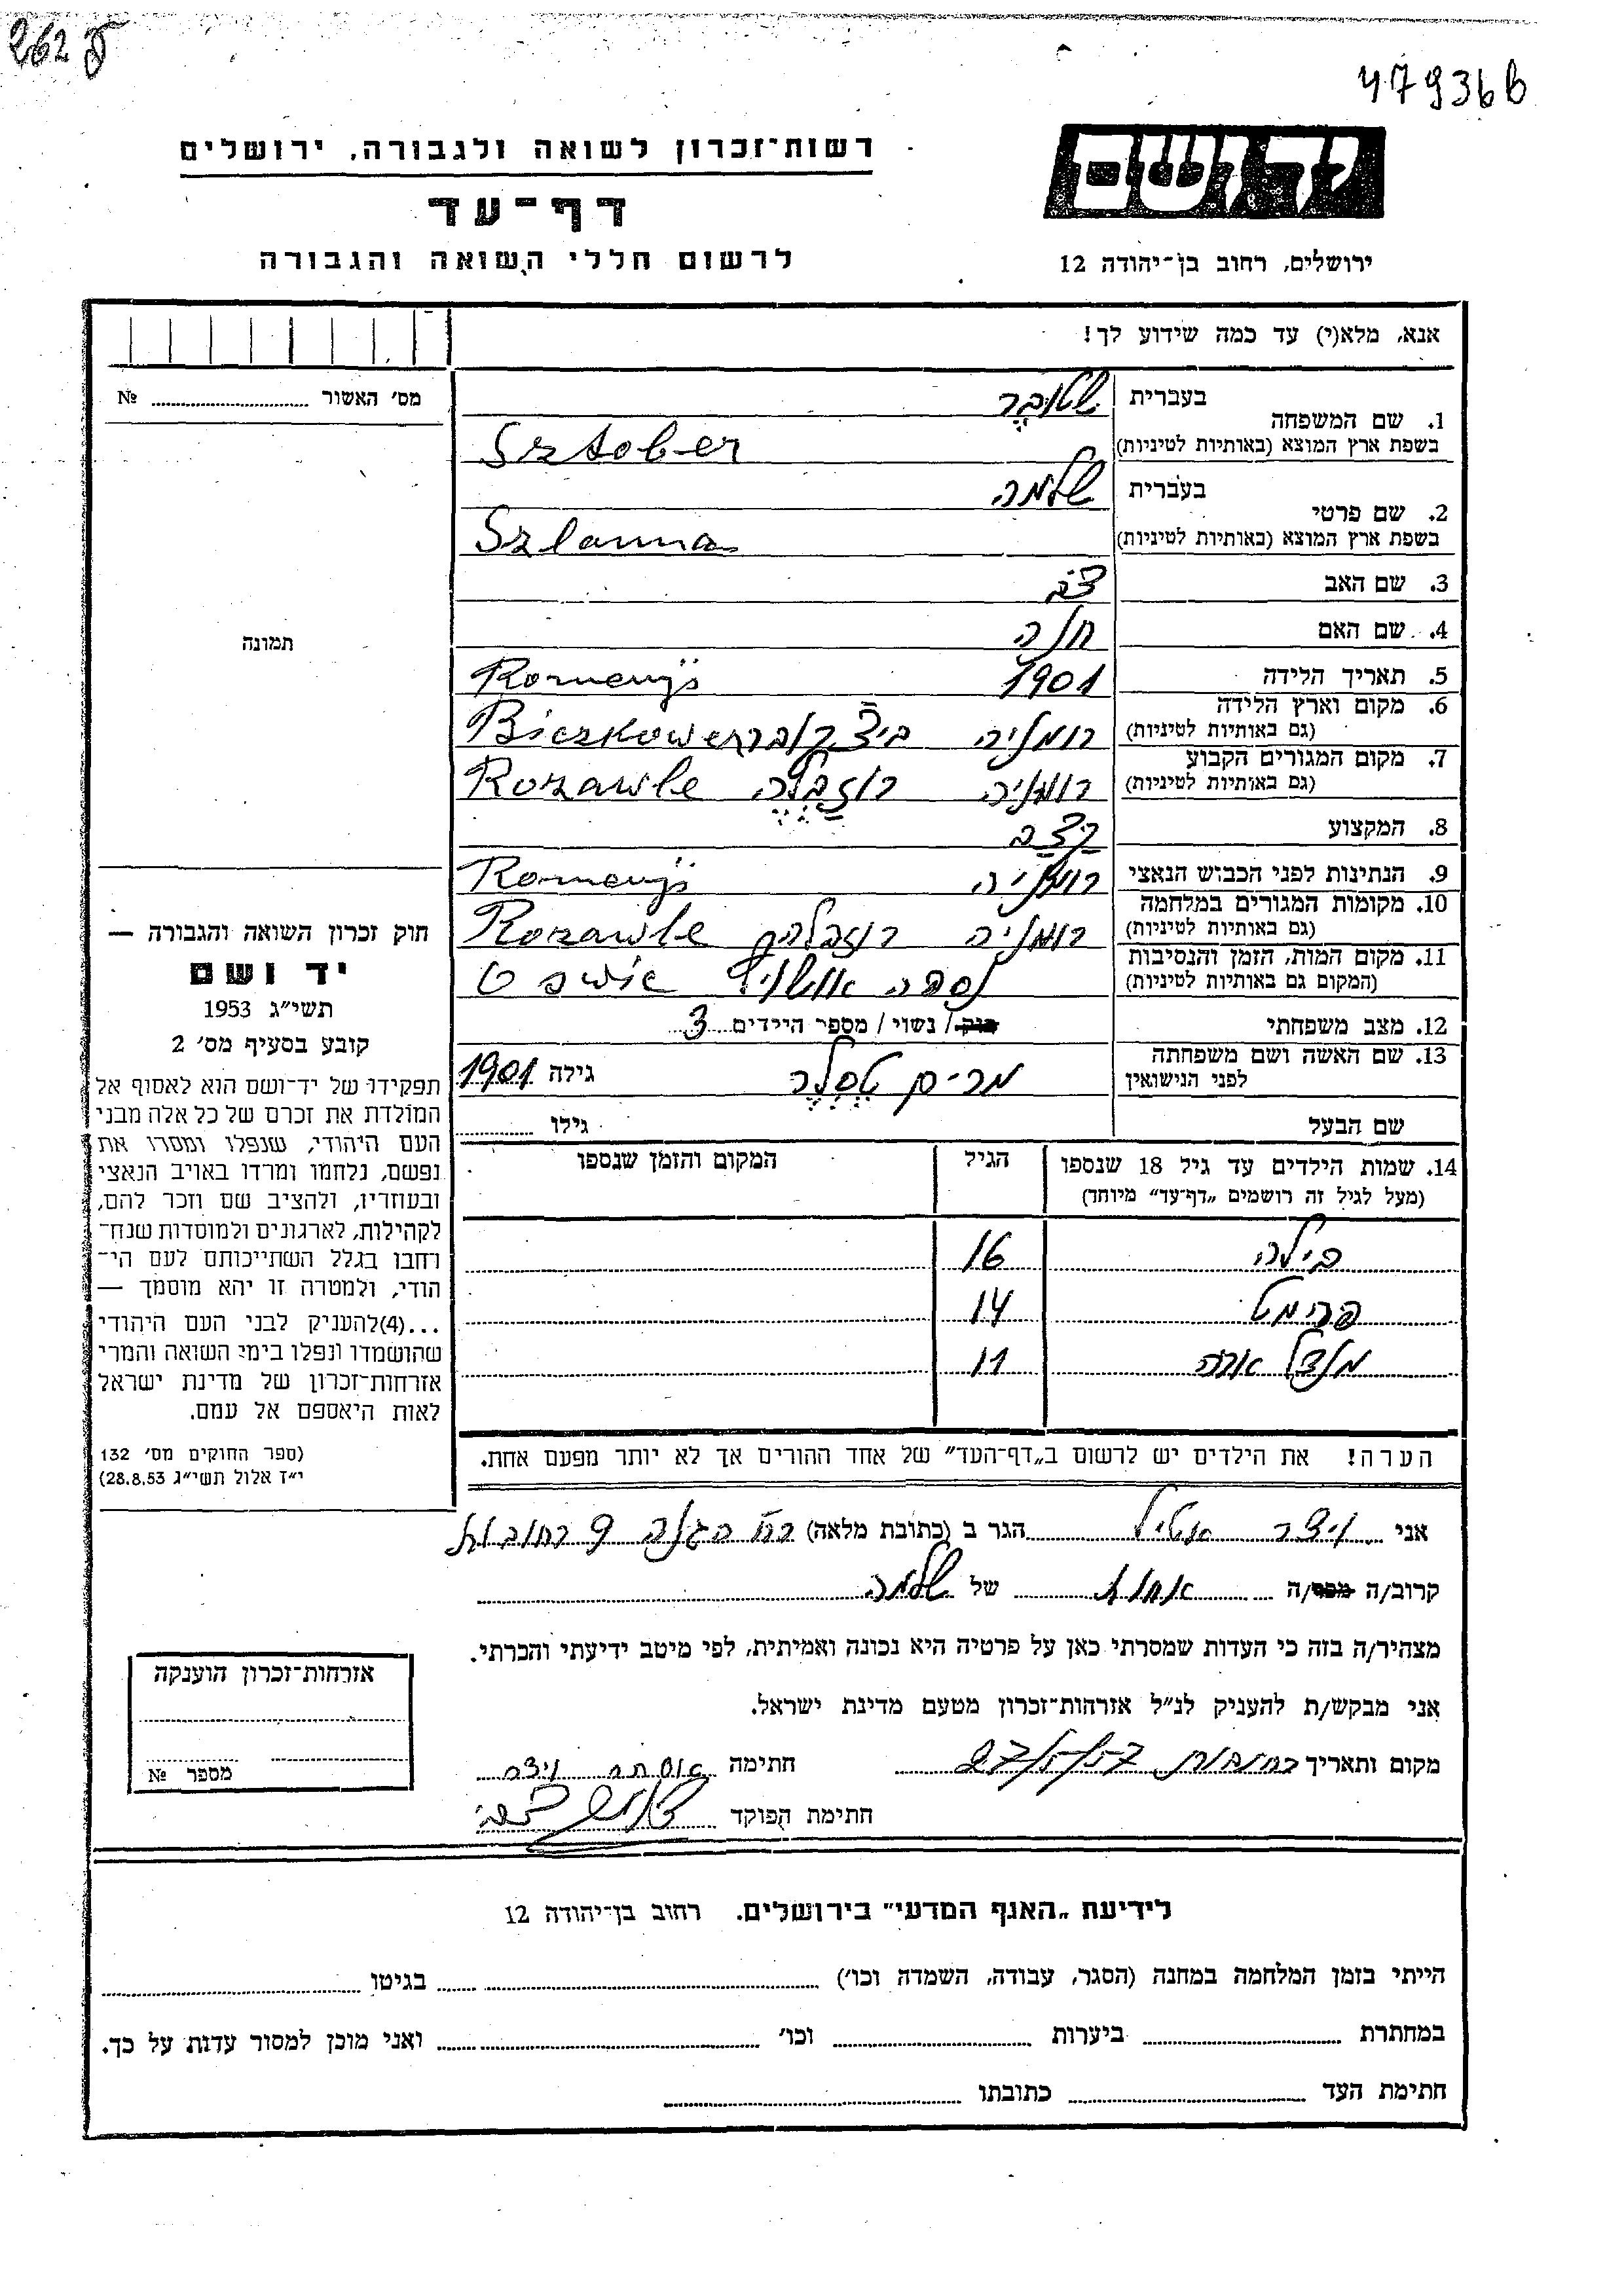 262 פ
479366
רשות־זכרון לשואה ולגבורה, ירושלים
ידושם
דף־עד
לרשום חללי השואה והגבורה
ירושלים, רחוב בן־יהודה 12
אנא, מלא(י) עד כמה שידוע לך!
מס׳ האשור № 
1. שם המשפחה
בעברית שטובר
בשפת ארץ המוצא (באותיות לטיניות) Sztober
2. שם פרטי
בעברית שלמה
בשפת ארץ המוצא (באותיות לטיניות) Szlama
3. שם האב צבי
4. שם האם חנה
תמונה
5. תאריך הלידה 1901 Romenija
6. מקום וארץ הלידה
(גם באותיות לטיניות) רומניה ביצקובר Bieczkower
7. מקום המגורים הקבוע
(גם באותיות לטיניות) רומניה רוזבלה Rozawle
8. המקצוע קצב
9. הנתינות לפני הכבוש הנאצי רומניה Romenija
10. מקומות המגורים במלחמה
(גם באותיות לטיניות) רומניה רוזבלה Rozawle
11. מקום המות, הזמן והנסיבות
(המקום גם באותיות לטיניות) נספה אושוויץ
12. מצב משפחתי רוק / נשוי / מספר הילדים 3
13. שם האשה ושם משפחתה
לפני הנישואין מרים טסלר גילה 1901
שם הבעל גילו
14. שמות הילדים עד גיל 18 שנספו הגיל המקום והזמן שנספו
(מעל לגיל זה רושמים „דף־עד״ מיוחד)
בילה 16
פרימט 14
מנדל אריה 11
הערה! את הילדים יש לרשום ב„דף־העד״ של אחד ההורים אך לא יותר מפעם אחת.
חוק זכרון השואה והגבורה —
יד ושם
תשי״ג 1953
קובע בסעיף מס׳ 2
תפקידו של יד־ושם הוא לאסוף אל
המולדת את זכרם של כל אלה מבני
העם היהודי, שנפלו ומסרו את
נפשם, נלחמו ומרדו באויב הנאצי
ובעוזריו, ולהציב שם וזכר להם,
לקהילות, לארגונים ולמוסדות שנח־
רחבו בגלל השתייכותם לעם הי־
הודי, ולמטרה זו יהא מוסמך —
...(4)להעניק לבני העם היהודי
שהושמדו ונפלו בימי השואה והמרי
אזרחות־זכרון של מדינת ישראל
לאות היאספם אל עמם.
(ספר החוקים מס׳ 132
י״ז אלול תשי״ג 28.8.53)
אני ויצר אסתר הגר ב (כתובת מלאה) רח הגנה 9 רחובות
קרוב/ה מכר/ה אחות של שלמה
מצהיר/ה בזה כי העדות שמסרתי כאן על פרטיה היא נכונה ואמיתית, לפי מיטב ידיעתי והכרתי.
אני מבקש/ת להעניק לנ״ל אזרחות־זכרון מטעם מדינת ישראל.
מקום ותאריך רחובות חתימה אסתר ויצר
חתימת הפוקד
אזרחות־זכרון הוענקה
מספר №
לידיעת „האגף המדעי״ בירושלים. רחוב בן־יהודה 12
הייתי בזמן המלחמה במחנה (הסגר, עבודה, השמדה וכו׳) בגיטו
במחתרת ביערות וכו׳ ואני מוכן למסור עדות על כך.
חתימת העד כתובתו